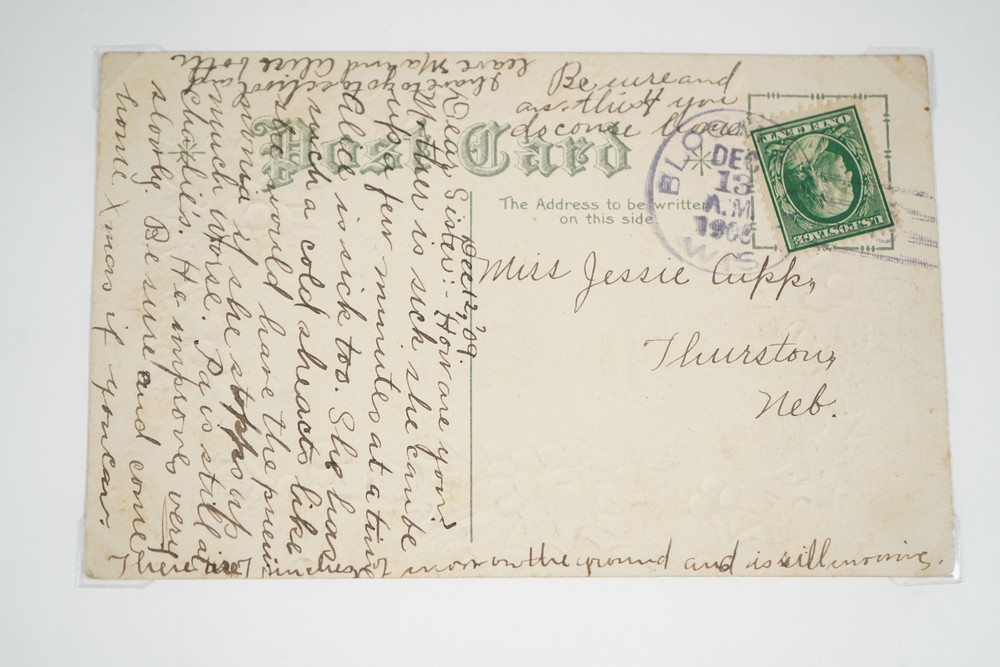 Post Card
The Address to be written
on this side
BLOOM
DEC
13
A.M
1909
WIS
U.S. POSTAGE
ONE CENT
Miss Jessie Cupp,
Thurston,
Neb.
Dec 12, '09.
Dear Sister:- How are you?
Mother is such she can be
up a few minutes at a time
Allie is sick too. She has
such a cold she acts like
she would have the pneu-
monia if she stopps up
much worse. Pa is still at
Charlie's. He improves very
slowly. Be sure and come
home Xmas if you can.
There are 7 inches of snow on the ground and is still snowing.
I have to go to school and
leave Ma and Allie both
Be sure and
you
do come home